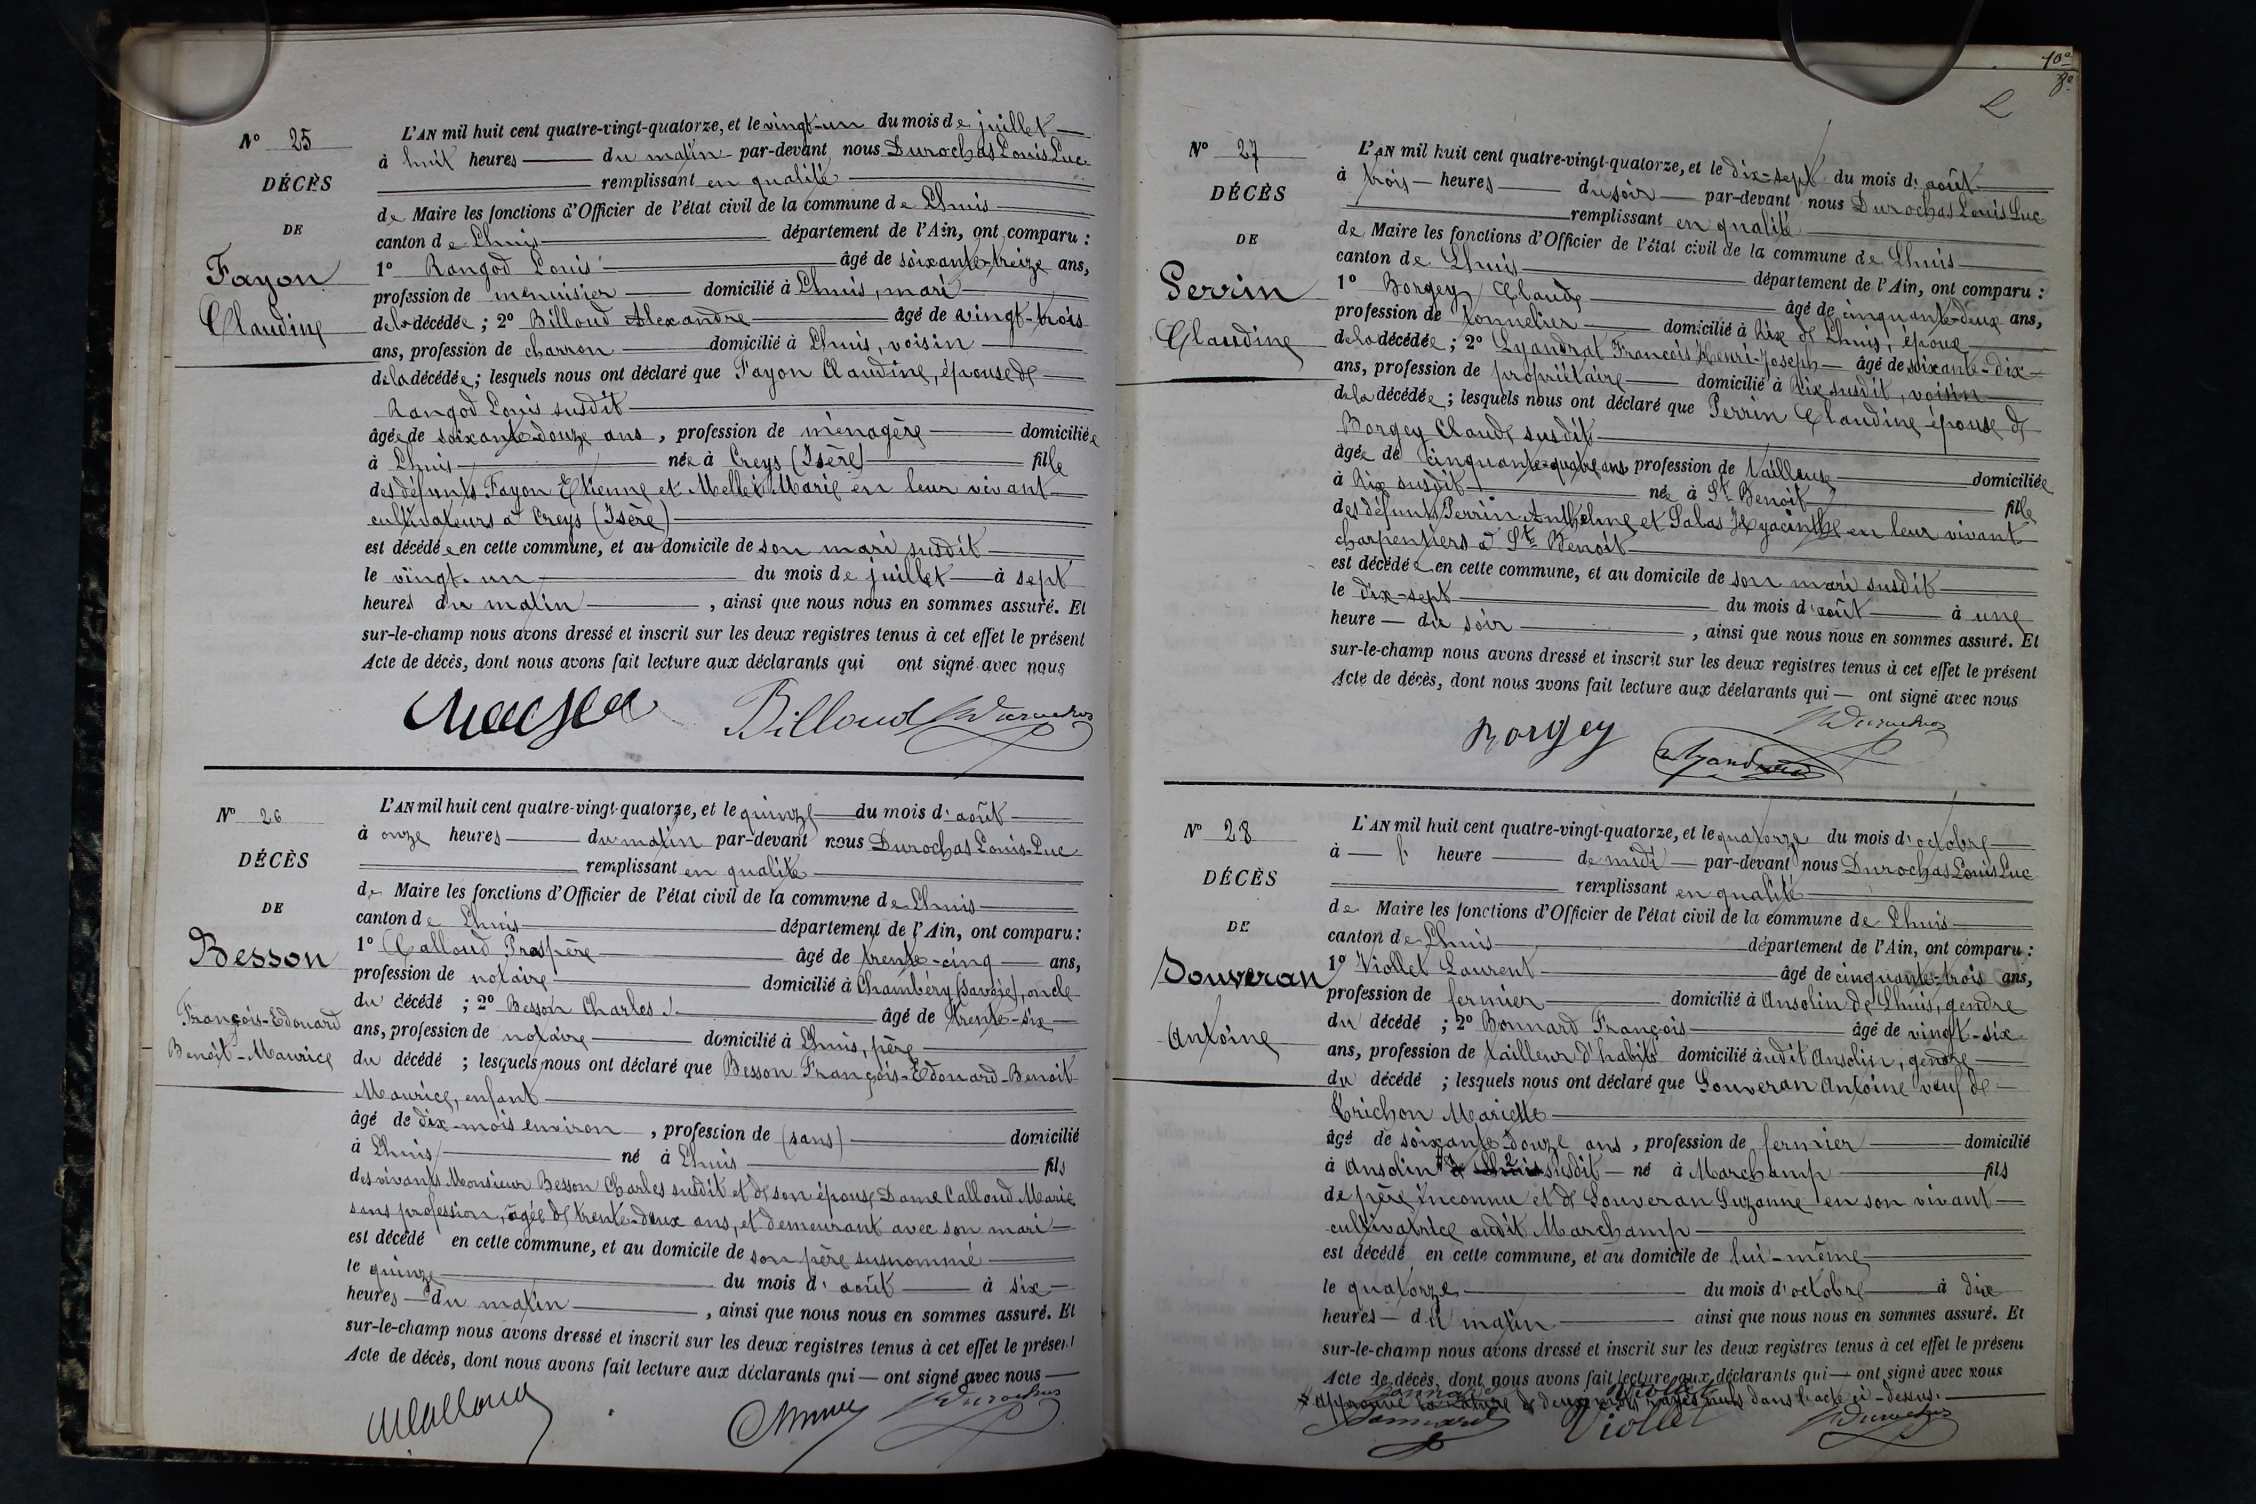 N° 25
DÉCÈS
DE
Fayon
Claudine
L'AN mil huit cent quatre-vingt-quatorze, et le vingt-un du mois de juillet
à huit heures du matin par-devant nous Durochas Louis Luc
remplissant en qualité
de Maire les fonctions d'Officier de l'état civil de la commune de Lhuis
canton de Lhuis département de l'Ain, ont comparu :
1° Rangod Louis âgé de soixante-treize ans,
profession de menuisier domicilié à Lhuis, mari
de la décédée ; 2° Billoud Alexandre âgé de vingt-trois
ans, profession de charron domicilié à Lhuis, voisin
de la décédée ; lesquels nous ont déclaré que Fayon Claudine, épouse de
Rangod Louis susdit
âgée de soixante-douze ans, profession de ménagère domiciliée
à Lhuis née à Creys (Isère) fille
des défunts Fayon Etienne et Mellet Marie en leur vivant
cultivateurs à Creys (Isère)
est décédée en cette commune, et au domicile de son mari susdit
le vingt-un du mois de juillet à sept
heures du matin, ainsi que nous nous en sommes assuré. Et
sur-le-champ nous avons dressé et inscrit sur les deux registres tenus à cet effet le présent
Acte de décès, dont nous avons fait lecture aux déclarants qui ont signé avec nous
Billoud Durochas
N° 26
DÉCÈS
DE
Besson
François-Edouard
Benoit-Maurice
L'AN mil huit cent quatre-vingt-quatorze, et le quinze du mois d'août
à onze heures du matin par-devant nous Durochas Louis-Luc
remplissant en qualité
de Maire les fonctions d'Officier de l'état civil de la commune de Lhuis
canton de Lhuis département de l'Ain, ont comparu :
1° Calloud Prospère âgé de trente-cinq ans,
profession de notaire domicilié à Chambéry (Savoie), oncle
du décédé ; 2° Besson Charles J. âgé de trente-six
ans, profession de notaire domicilié à Lhuis, père
du décédé ; lesquels nous ont déclaré que Besson François-Edouard-Benoit
Maurice, enfant
âgé de dix mois environ, profession de (sans) domicilié
à Lhuis né à Lhuis fils
des vivants Monsieur Besson Charles susdit et de son épouse Dame Calloud Marie
sans profession, âgée de trente-deux ans, et demeurant avec son mari
est décédé en cette commune, et au domicile de son père susnommé
le quinze du mois d'août à six
heures du matin, ainsi que nous nous en sommes assuré. Et
sur-le-champ nous avons dressé et inscrit sur les deux registres tenus à cet effet le présent
Acte de décès, dont nous avons fait lecture aux déclarants qui — ont signé avec nous
Calloud Durochas
10e
8e
N° 27
DÉCÈS
DE
Perrin
Claudine
L'AN mil huit cent quatre-vingt-quatorze, et le dix-sept du mois d'août
à trois heures du soir par-devant nous Durochas Louis Luc
remplissant en qualité
de Maire les fonctions d'Officier de l'état civil de la commune de Lhuis
canton de Lhuis département de l'Ain, ont comparu :
1° Borgey Claude âgé de cinquante-deux ans,
profession de tonnelier domicilié à Rix de Lhuis, époux
de la décédée ; 2° Lyandrat François Henri-Joseph âgé de soixante-dix
ans, profession de propriétaire domicilié à Rix susdit, voisin
de la décédée ; lesquels nous ont déclaré que Perrin Claudine épouse de
Borgey Claude susdit
âgée de cinquante-quatre ans profession de tailleuse domiciliée
à Rix susdit née à St Benoit fille
des défunts Perrin Anthelme et Salas Hyacinthe en leur vivant
charpentiers à St Benoit
est décédée en cette commune, et au domicile de son mari susdit
le dix-sept du mois d'août à une
heure du soir, ainsi que nous nous en sommes assuré. Et
sur-le-champ nous avons dressé et inscrit sur les deux registres tenus à cet effet le présent
Acte de décès, dont nous avons fait lecture aux déclarants qui — ont signé avec nous
Borgey Lyandrat Durochas
N° 28
DÉCÈS
DE
Souveran
Antoine
L'AN mil huit cent quatre-vingt-quatorze, et le quatorze du mois d'octobre
à l' heure de midi par-devant nous Durochas Louis Luc
remplissant en qualité
de Maire les fonctions d'Officier de l'état civil de la commune de Lhuis
canton de Lhuis département de l'Ain, ont comparu :
1° Viollet Laurent âgé de cinquante-trois ans,
profession de fermier domicilié à Ansolin de Lhuis, gendre
du décédé ; 2° Bonnard François âgé de vingt-six
ans, profession de tailleur d'habits domicilié audit Ansolin, gendre
du décédé ; lesquels nous ont déclaré que Souveran Antoine veuf de
Trichon Mariette
âgé de soixante-douze ans, profession de fermier domicilié
à Ansolin de Lhuis susdit né à Marchamp fils
de père inconnu et de Souveran Suzanne en son vivant
cultivatrice audit Marchamp
est décédé en cette commune, et au domicile de lui-même
le quatorze du mois d'octobre à dix
heures du matin ainsi que nous nous en sommes assuré. Et
sur-le-champ nous avons dressé et inscrit sur les deux registres tenus à cet effet le présent
Acte de décès, dont nous avons fait lecture aux déclarants qui — ont signé avec nous
Bonnard Viollet
approuvé la rature de deux mots rayés nuls dans l'acte ci-dessus.
Bonnard Viollet Durochas